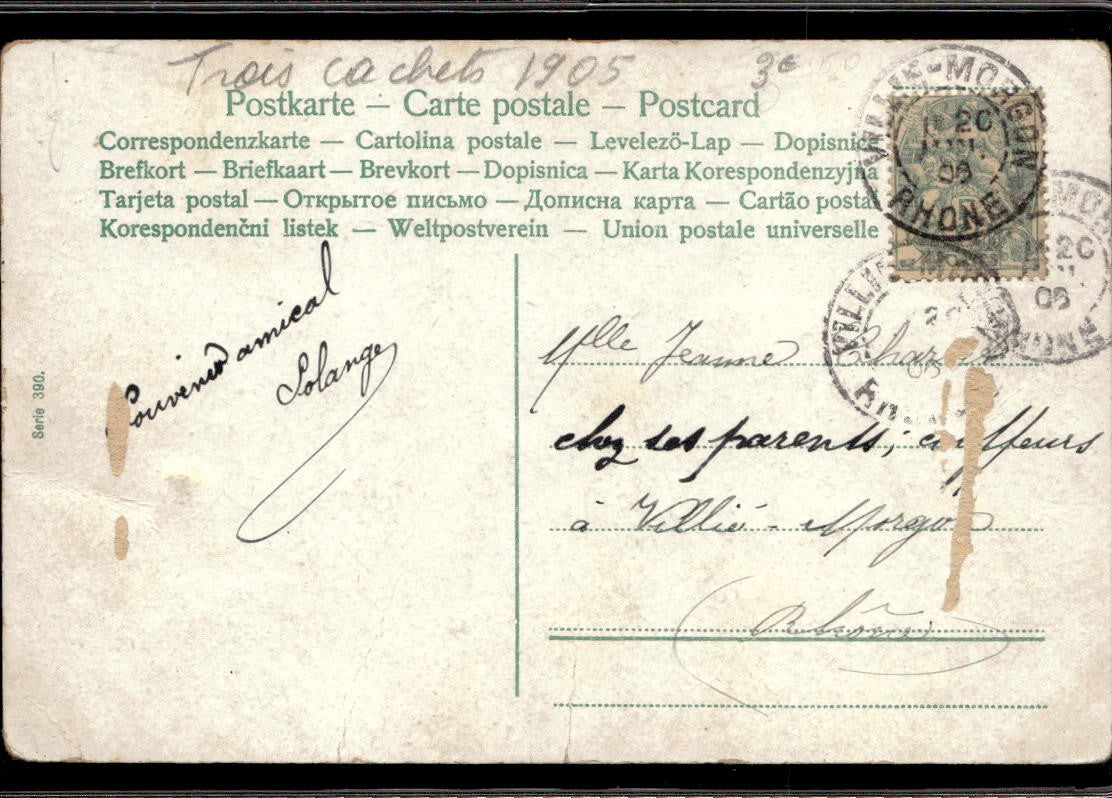 Trois cachets 1905 3€
Postkarte — Carte postale — Postcard
Correspondenzkarte — Cartolina postale — Levelező-Lap — Dopisnice
Brefkort — Briefkaart — Brevkort — Dopisnica — Karta Korespondenzyjna
Tarjeta postal — Открытое письмо — Дописна карта — Cartão postal
Korespondenčni listek — Weltpostverein — Union postale universelle
VILLIE-MORGON
20
05
RHONE
Souvenir amical
Solange
Serie 390.
Mlle Jeanne
chez ses parents, coiffeurs
à Villié-Morgon
Rhône